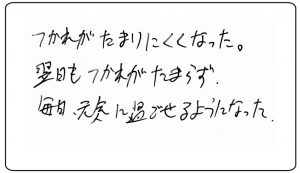 つかれがたまりにくくなった。
翌日もつかれがたまらず、
毎日、元気に過ごせるようになった.